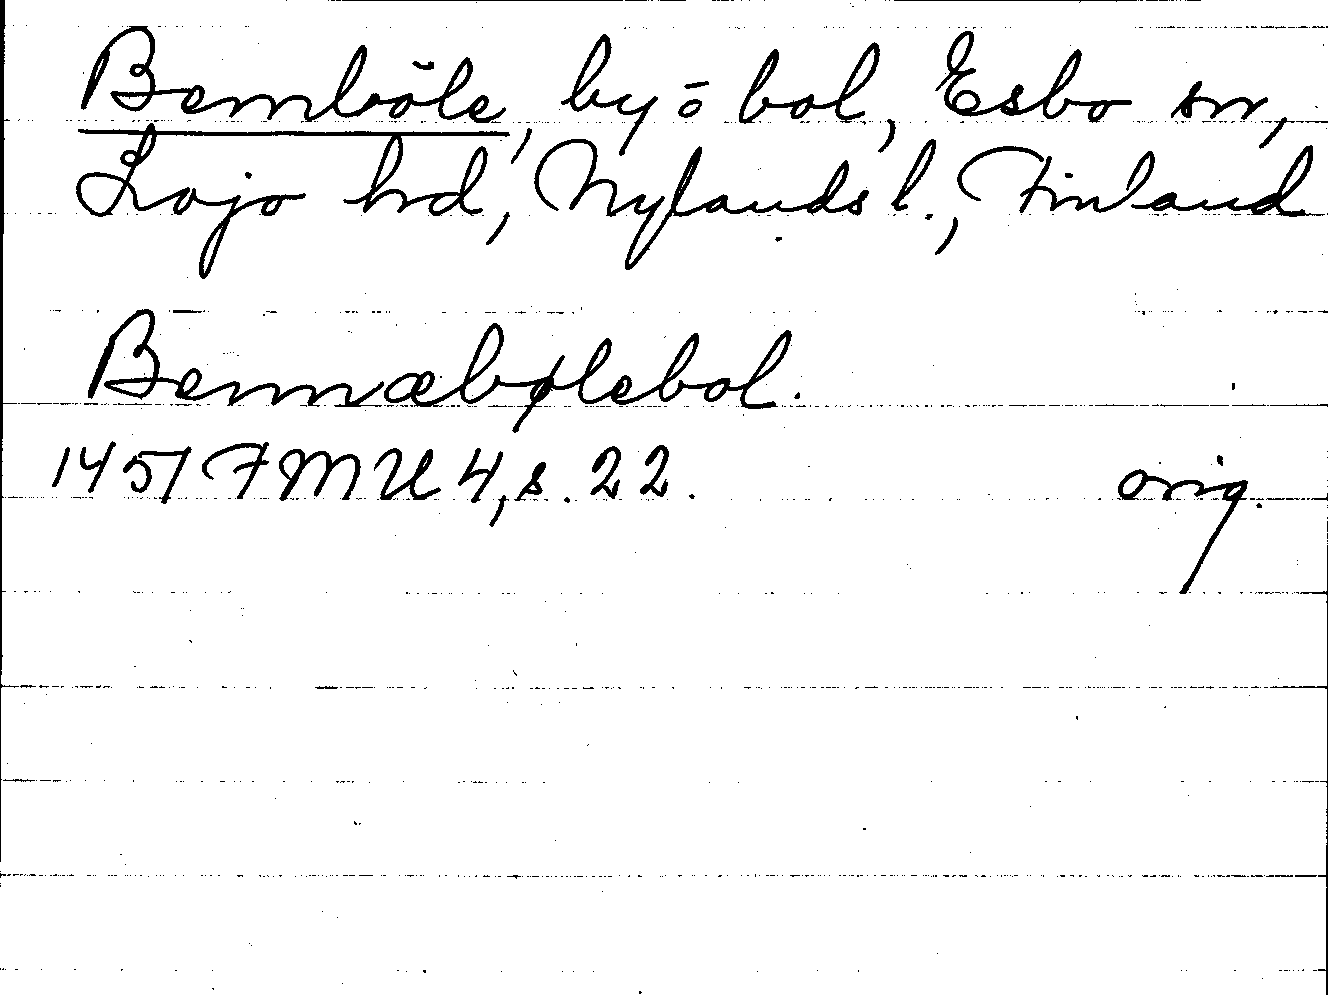 Bemböle, by o bol, Esbo sn,
Lojo hd, Nylands l., Finland
Bennæbølebol.
1451 FMU 4, s. 22. orig.